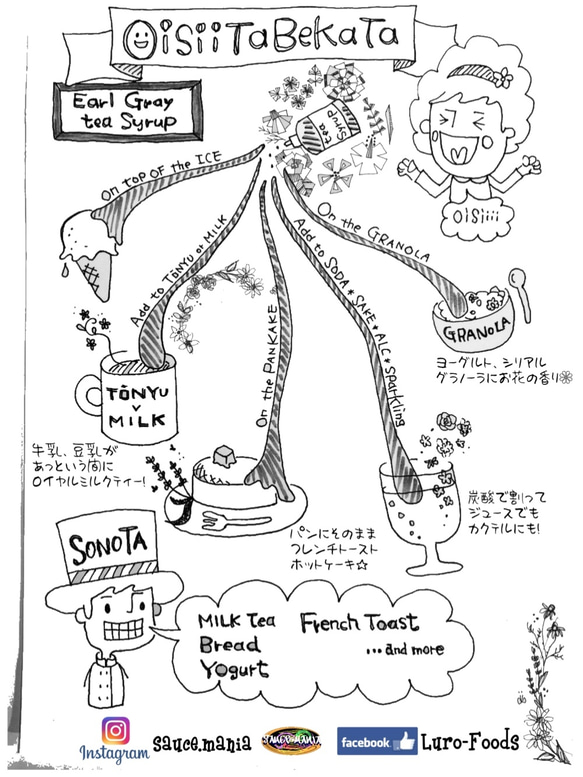 OiSiiTaBeKaTa
Earl Gray
tea Syrup
tea
Syrup
On TOP OF the ICE
Add to TŌNYU or MILK
On the PANKAKE
Add to SODA * SAKE * ALC * sparkling
On the GRANOLA
OiSiiii
GRANOLA
ヨーグルト、シリアル
グラノーラにお花の香り
TŌNYU
v
MILK
牛乳、豆乳が
あっという間に
ロイヤルミルクティー!
パンにそのまま
フレンチトースト
ホットケーキ☆
炭酸で割って
ジュースでも
カクテルにも!
SONOTA
MILK Tea French Toast
Bread ...and more
Yogurt
Instagram sauce.mania facebook Luro-Foods